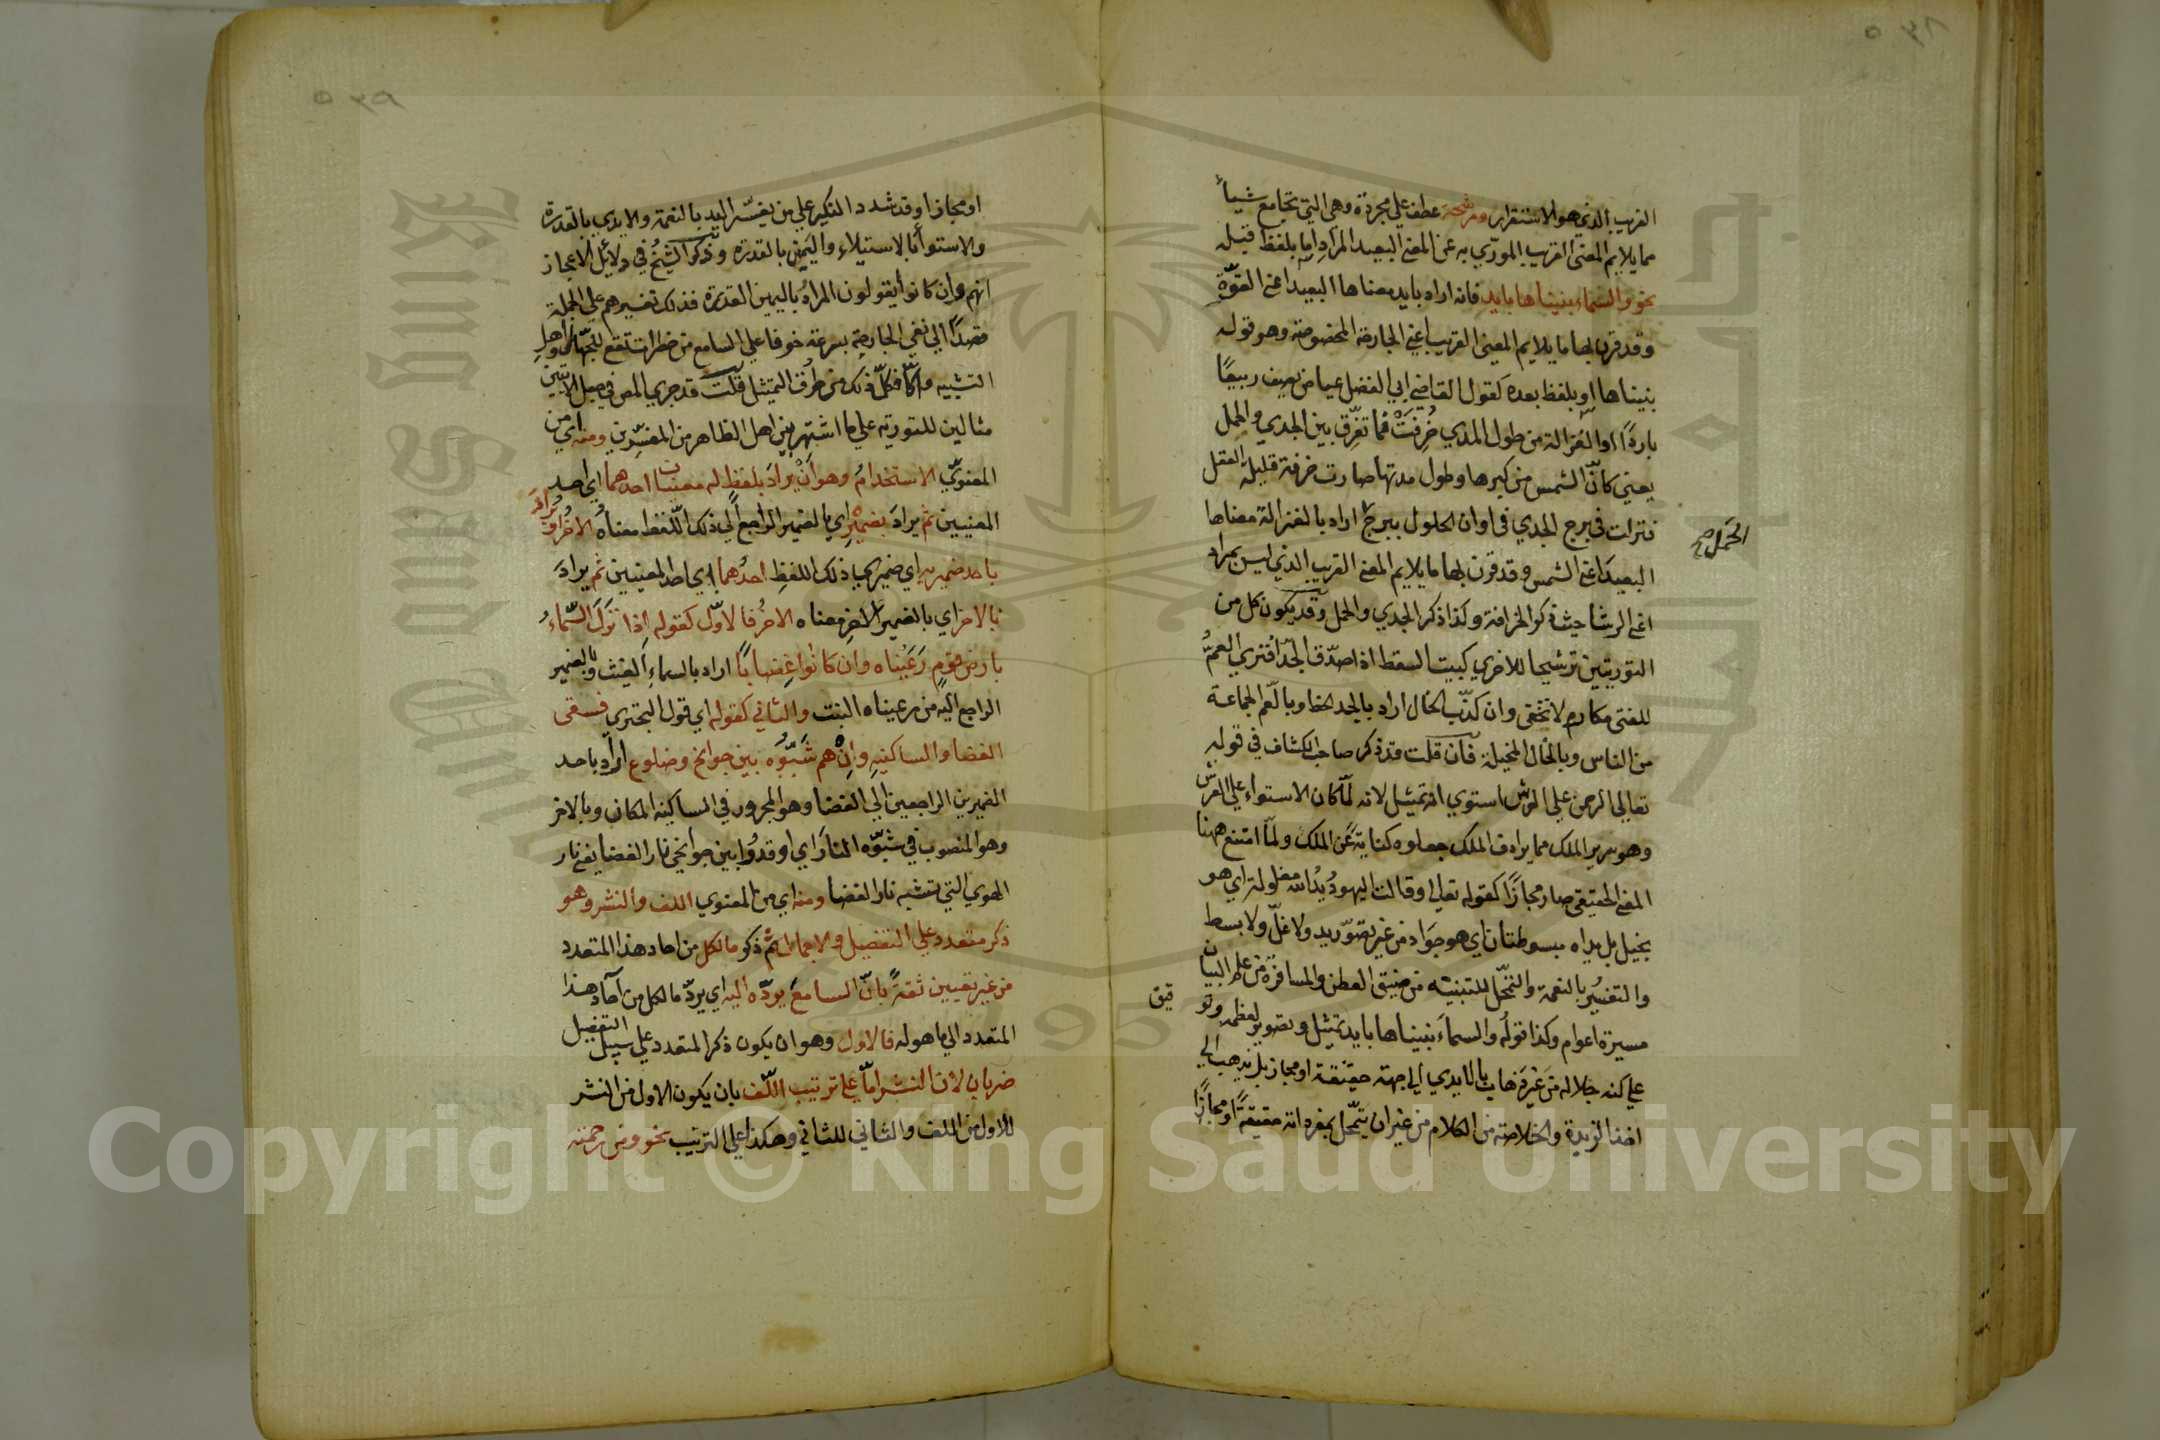 ٥٣٨
القريب الذي هو الاستقرار ومرشحة عطف علي مجردة وهي التي تجامع شيأ
مما يلايم المعنى القريب المورّي به عن المعنى البعيد المراد اما بلفظ قبله
نحو والسماء بنيناها بايد فانه اراد بايد معناها البعيد اعني القوّة
وقد قرن لها ما يلايم المعنى القريب اعني الجارحة المخصوصة وهو قوله
بنيناها او بلفظ بعده كقول القاضي ابي الفضل عياض يصف ربيعًا
باردًا او الغزالة من طول المدي خرفت فما تفرّق بين الجدي والحمل
يعني كانّ الشمس من كبرها وطول مدتها صارت خرفة قليلة العقل
فنزلت في برج الجدي في اوان الحلول ببرج اراد بالغزالة معناها
الحمل صح
البعيد اعني الشمس وقد قرن لها ما يلايم المعنى القريب الذي ليس بمراد
اعني الرشا حيث ذكر الخرافة وكذا ذكر الجدي والحمل وقد يكون كل من
التوريتين ترشيحا للاخري كبيت السقط اذا صدّق الجدّ افتري العمّ
للفتي مكارم لا تخفي وان كذّب الخال اراد بالجد الحظ وبالعم الجماعة
من الناس وبالخال المخيلة فان قلت قد ذكر صاحب الكشاف في قوله
تعالي الرحمن علي العرش استوي انه تمثيل لانه لمّا كان الاستواء علي العرش
وهو سرير الملك مما يرادف الملك جعلوه كناية عن الملك ولمّا امتنع ههنا
المعنى الحقيقي صار مجازًا كقوله تعالي وقالت اليهود يد الله مغلولة اي هو
بخيل بل يداه مبسوطتان اي هو جواد من غير تصوّر يد ولا غلّ ولا بسط
والتفسير بالنعمة والتمحّل للتثنية من ضيق العطن والمسافرة عن علم البيان
مسيرة اعوام وكذا قوله والسماء بنيناها بايد تمثيل وتصوير لعظمته وتو
قيق
علي كنه جلاله من غير ذهاب بالايدي الي جهة حقيقة او مجاز بل يذهب الي
اخذ الزبدة والخلاصة من الكلام من غير ان يتمحّل لمفرداته حقيقةً او مجازًا
٥٣٩
او مجازا وقد شدد النكير علي من يفسّر اليد بالنعمة والايدي بالقدرة
والاستوأ بالاستيلاء واليمين بالقدرة وذكر الشيخ في دلائل الاعجاز
انهم وان كانوا يقولون المراد باليمين القدرة فذلك تفسيرهم علي الجملة
قصدًا الي نفي الجارحة بسرعة خوفا علي السامع من خطرات تقع للجهال واهل
التشبيه والّا فكلّ ذلك من طرق التمثيل قلت قد جري المص في جعل الايتين
مثالين للتورية علي ما اشتهر بين اهل الظاهر من المفسّرين ومنه اي من
المعنويّ الاستخدام وهو ان يراد بلفظ له معنيان احدهما اي احد
المعنيين ثم يراد بضميره اي بالضمير الراجع الي ذلك اللّفظ معناه الاخر او
يراد
باحد ضميريه اي ضميري ذلك اللفظ احدهما اي احد المعنيين ثم يراد
بالاخر اي بالضمير الاخر معناه الاخر فالاوّل كقوله اذا نزل السّماء
بارض قوم رعيناه وان كانوا غضابا اراد بالسماء الغيث وبالضمير
الراجع اليه من رعيناه النبت والثاني كقوله اي قول البحتري فسقى
الغضا والساكنيه وان هم شبّوه بين جوانح وضلوع اراد باحد
الضميرين الراجعين الي الغضا وهو المجرور في الساكنيه المكان وبالاخر
وهو المنصوب في شبّوه النار اي اوقدوا بين جوانحي نار الغضا يعني نار
الهوي التي تشبه نار الغضا ومنه اي من المعنوي اللف والنشر وهو
ذكر متعدد علي التفصيل والاجمال ثم ذكر ما لكل من احاد هذا المتعدد
من غير تعيين ثقةً بانّ السامع يردّه اليه اي يردّ ما لكل من آحاد هذا
المتعدد الي ما هو له فالاول وهو ان يكون ذكر المتعدد علي سبيل التفصيل
ضربان لان النشر امّا علي ترتيب اللّف بان يكون الاول من النشر
للاول من اللف والثاني للثاني وهكذا علي الترتيب نحو ومن رحمته
King Saud University
1957
Copyright © King Saud University